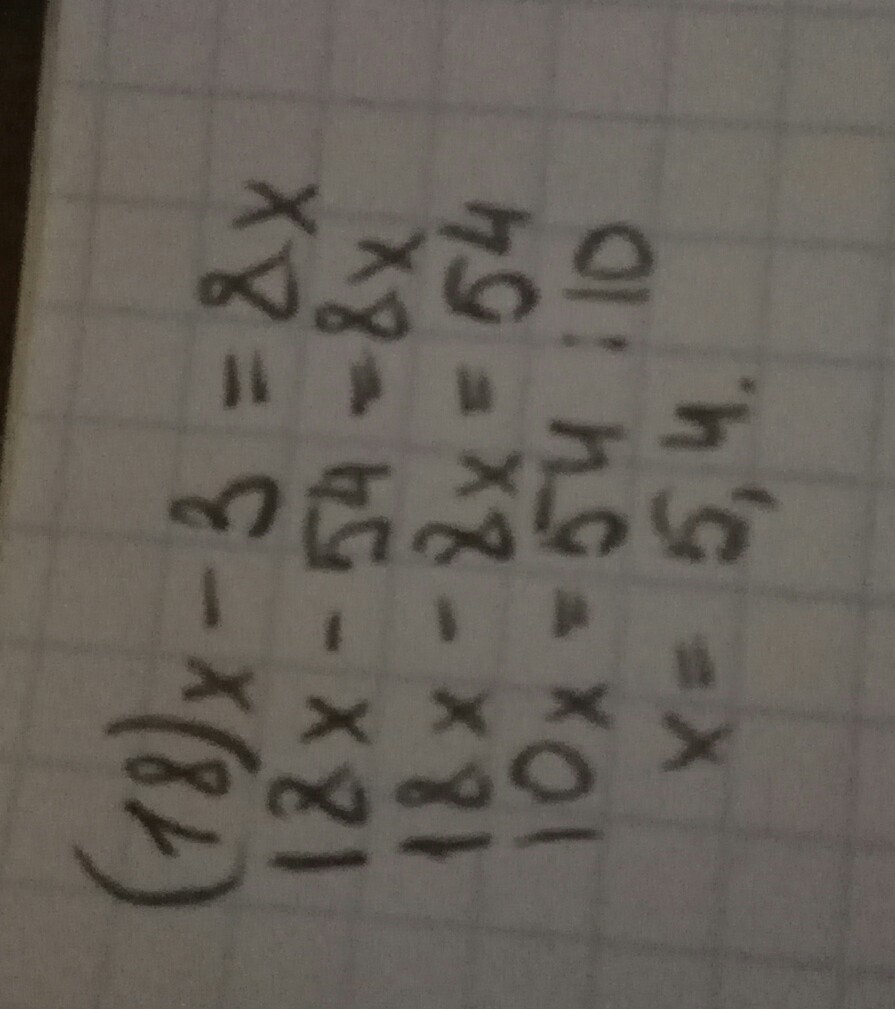 (18)x - 3 = 2x
12x - 54 = 2x
12x - 2x = 54
10x = 54 : 10
x = 5,4.